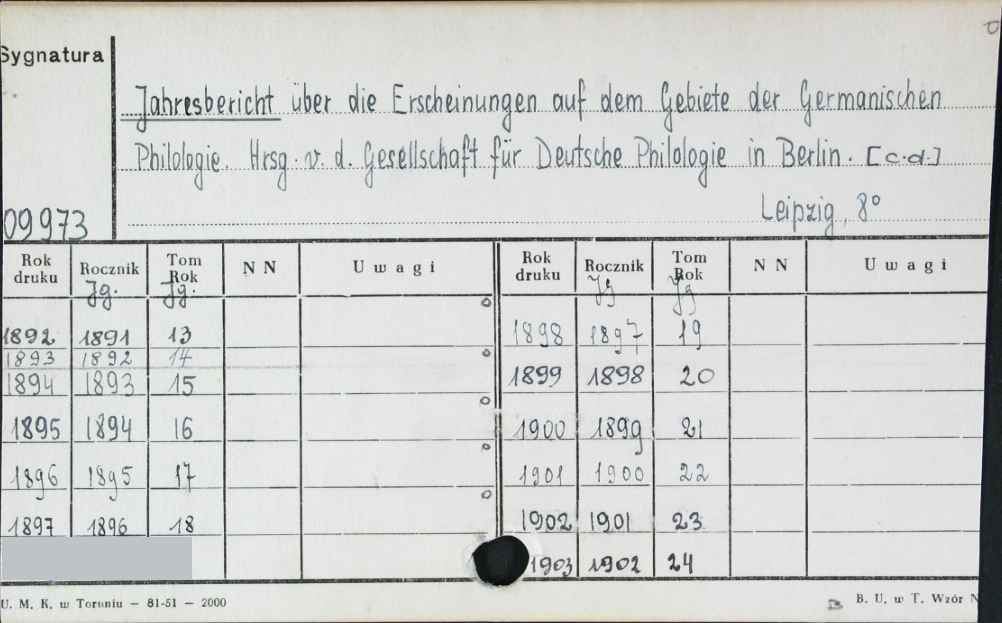 Sygnatura
Jahresbericht über die Erscheinungen auf dem Gebiete der Germanischen
Philologie. Hrsg. v. d. Gesellschaft für Deutsche Philologie in Berlin. [c.d.]
Leipzig, 8°
09973
Rok druku Rocznik Jg. Tom Rok Jg. N N Uwagi
1892 1891 13
1893 1892 14
1894 1893 15
1895 1894 16
1896 1895 17
1897 1896 18
Rok druku Rocznik Jg Tom Rok Jg N N Uwagi
1898 1897 19
1899 1898 20
1900 1899 21
1901 1900 22
1902 1901 23
1903 1902 24
U. M. K. w Toruniu – 81-51 – 2000
B. U. w T. Wzór N